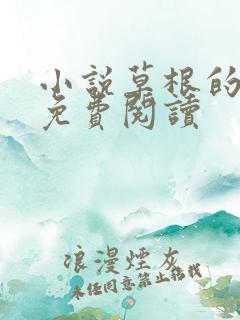 小說草根的
免費閱讀
浪漫煙灰
未经同意禁止转载